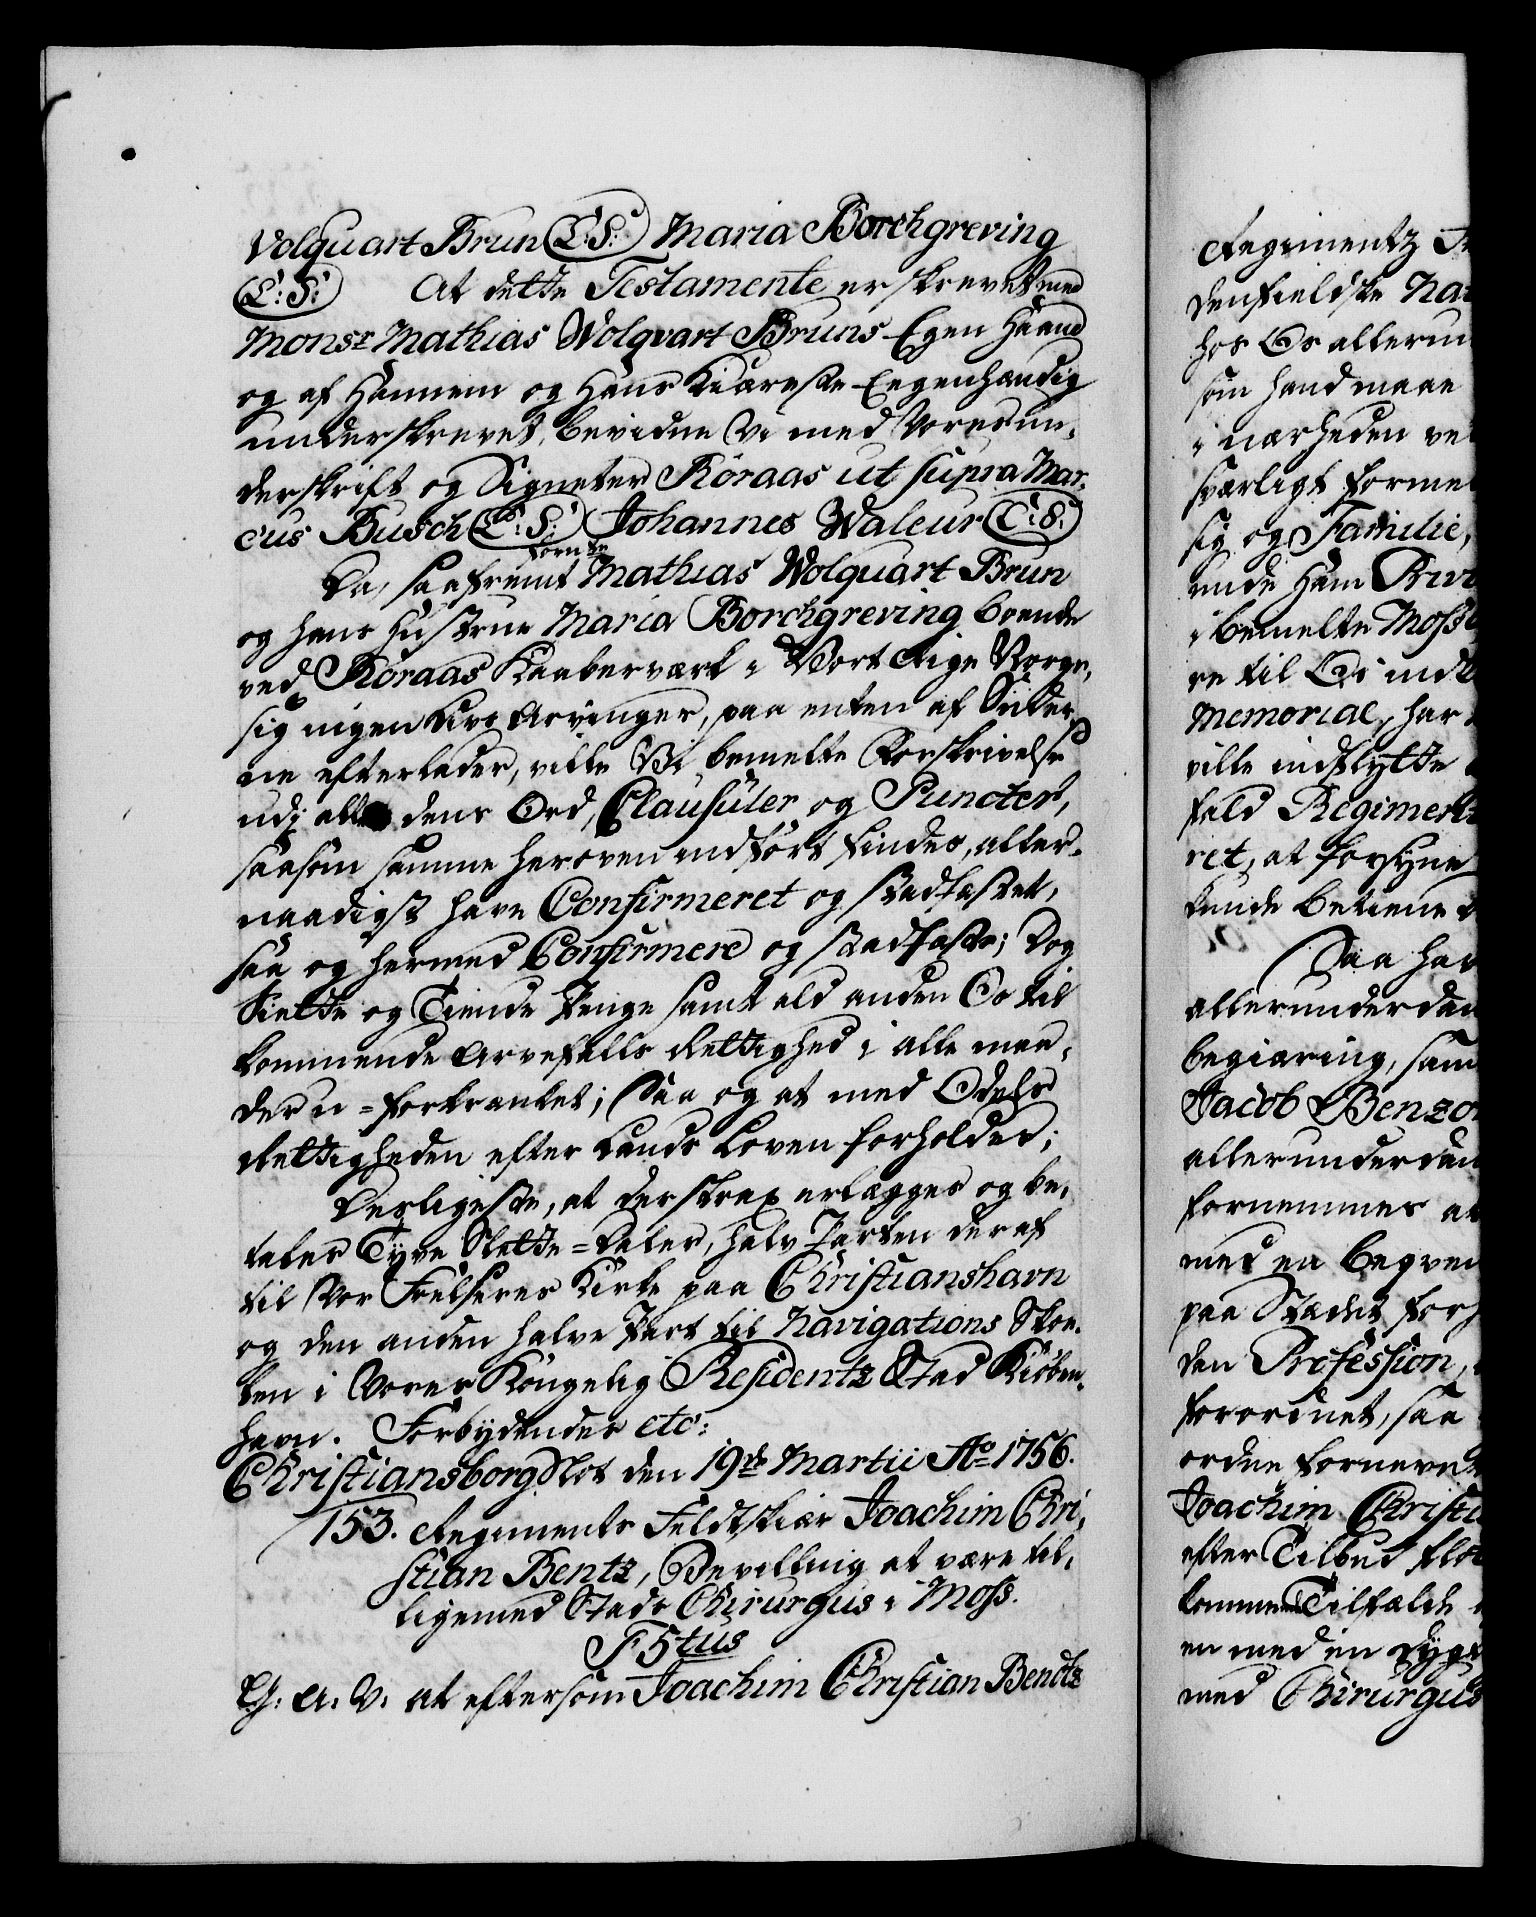 Volquart Brun (L:S:) Maria Borchgreving
(L:S:) At dette Testamente er skrevet med
Monsr Mathias Wolqvart Bruns Egen Haand
og af Hannem og Hans Kiæreste Eegenhændig
underskrevet, bevidne Vi med Vores un-
derskrift og Signeter Röraas ut supra Mar-
cus Busch (L:S:) Johannes Waleur (L:S:)
Da, saafremt fornte Mathias Wolquart Brun
og hans Hustrue Maria Borchgreving boende
ved Röraas Kaaberværk i Vort Rige Norge,
sig ingen Livs Arvinger, paa enten af Sider-
ne efterlader, ville Vi bemelte Forskrivelse
udj alle dens Ord, Clausuler og Puncter,
saasom samme heroven indfört findes, aller-
naadigst have Confirmeret og stadfæstet,
saa og hermed Confirmere og stadfæste; Dog
Siette og Tiende Penge samt ald anden Os til
kommende Arvefalds Rettighed i alle maa-
der u=forkrænket; Saa og at med Odels
Rettigheden efter Lands Loven forholdes;
Desligeste, at der strax erlægges og be-
tales Tyve Slette=Daler, halv Parten deraf
til Vor Frelseres Kirke paa Christianshavn
og den anden halve Part til Navigations Skoe-
len i Vores Kongelig Residentz Stad Kiöben-
havn. Forbydendes etc:
Christiansborg Slot den 19de Martii Ao 1756.
153. Regiments Feldtskiær Joachim Chri-
stian Bentz, Bevilling at være til-
ligemed Stads Chirurgus i Moss.
F. 5tus
G: A: V: at eftersom Joachim Christian Bendtz
Regimentz
denfieldske Nat
hos Os allerun
som hand maae
i nærheden ve
sværligt forme
sig og Familie,
unde Ham Priv
i bemelte Moss
re til Os indk
Memorial, har
ville indflytte
feld Regiment
ret, at forsyne
kunde betiene
Saa hav
allerunderdan
begiæring, sam
Jacob Benzon
allerunderdan
fornemmes at
med en beqvem
paa Stædet forh
den Profession,
forordnet, saa
ordne fornævnt
Joachim Christi
efter Tilbud flo
kommende Tilfælde
en med en dygt
med Chirurgus